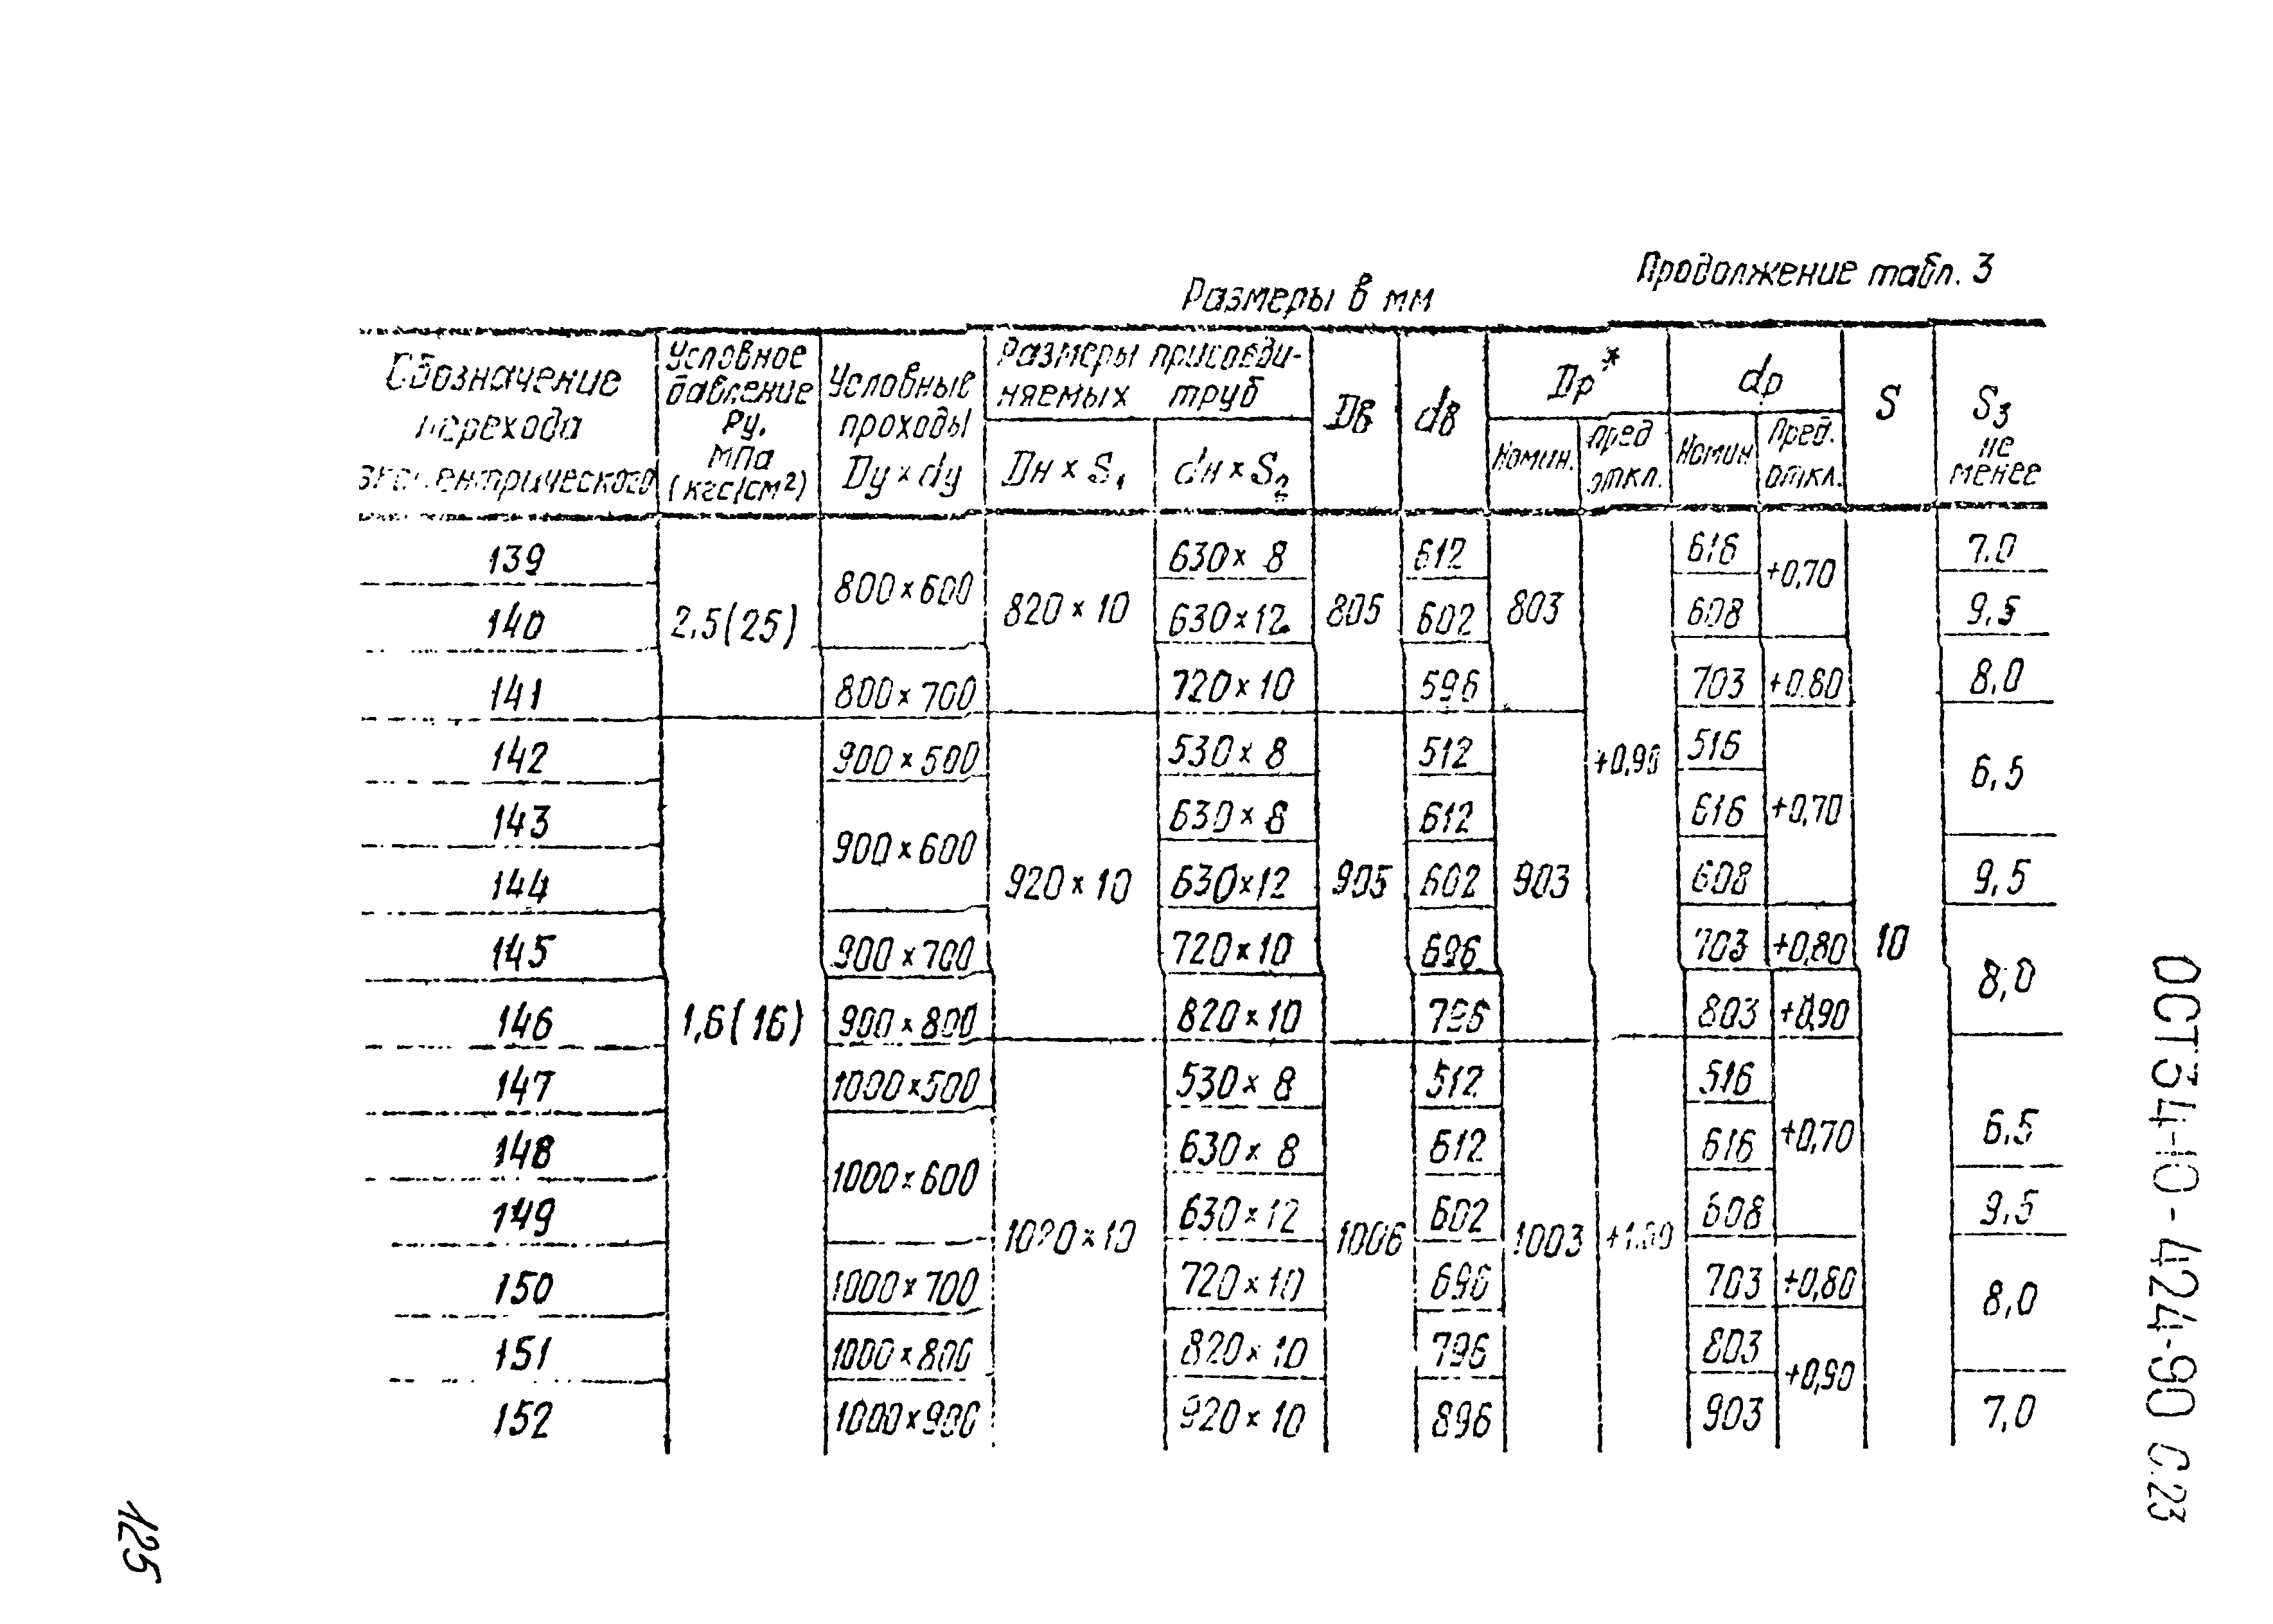 Продолжение табл. 3
Размеры в мм
Обозначение перехода эксцентрического
Условное давление Ру, МПа (кгс/см²)
Условные проходы Dу × dу
Размеры присоединяемых труб
Dн × S₁
dн × S₂
Dв
dв
Dр*
Номин.
пред откл.
dр
Номин
Пред. откл.
S
S₃ не менее
139 2,5(25) 800×600 820×10 630×8 805 612 803 +0,90 616 +0,70 10 7.0
140 630×12 602 608 9,5
141 800×700 720×10 596 703 +0.80 8,0
142 1,6(16) 900×500 920×10 530×8 905 512 903 516 +0,70 6,5
143 900×600 630×8 612 616
144 630×12 602 608 9,5
145 900×700 720×10 696 703 +0,80 8,0
146 900×800 820×10 796 803 +0,90
147 1000×500 1020×10 530×8 1006 512 1003 +1.00 516 +0,70 6,5
148 1000×600 630×8 612 616
149 630×12 602 608 9,5
150 1000×700 720×10 696 703 +0,80 8,0
151 1000×800 820×10 796 803 +0,90
152 1000×900 920×10 896 903 7,0
ОСТ 34-10-424-90 С.23
125